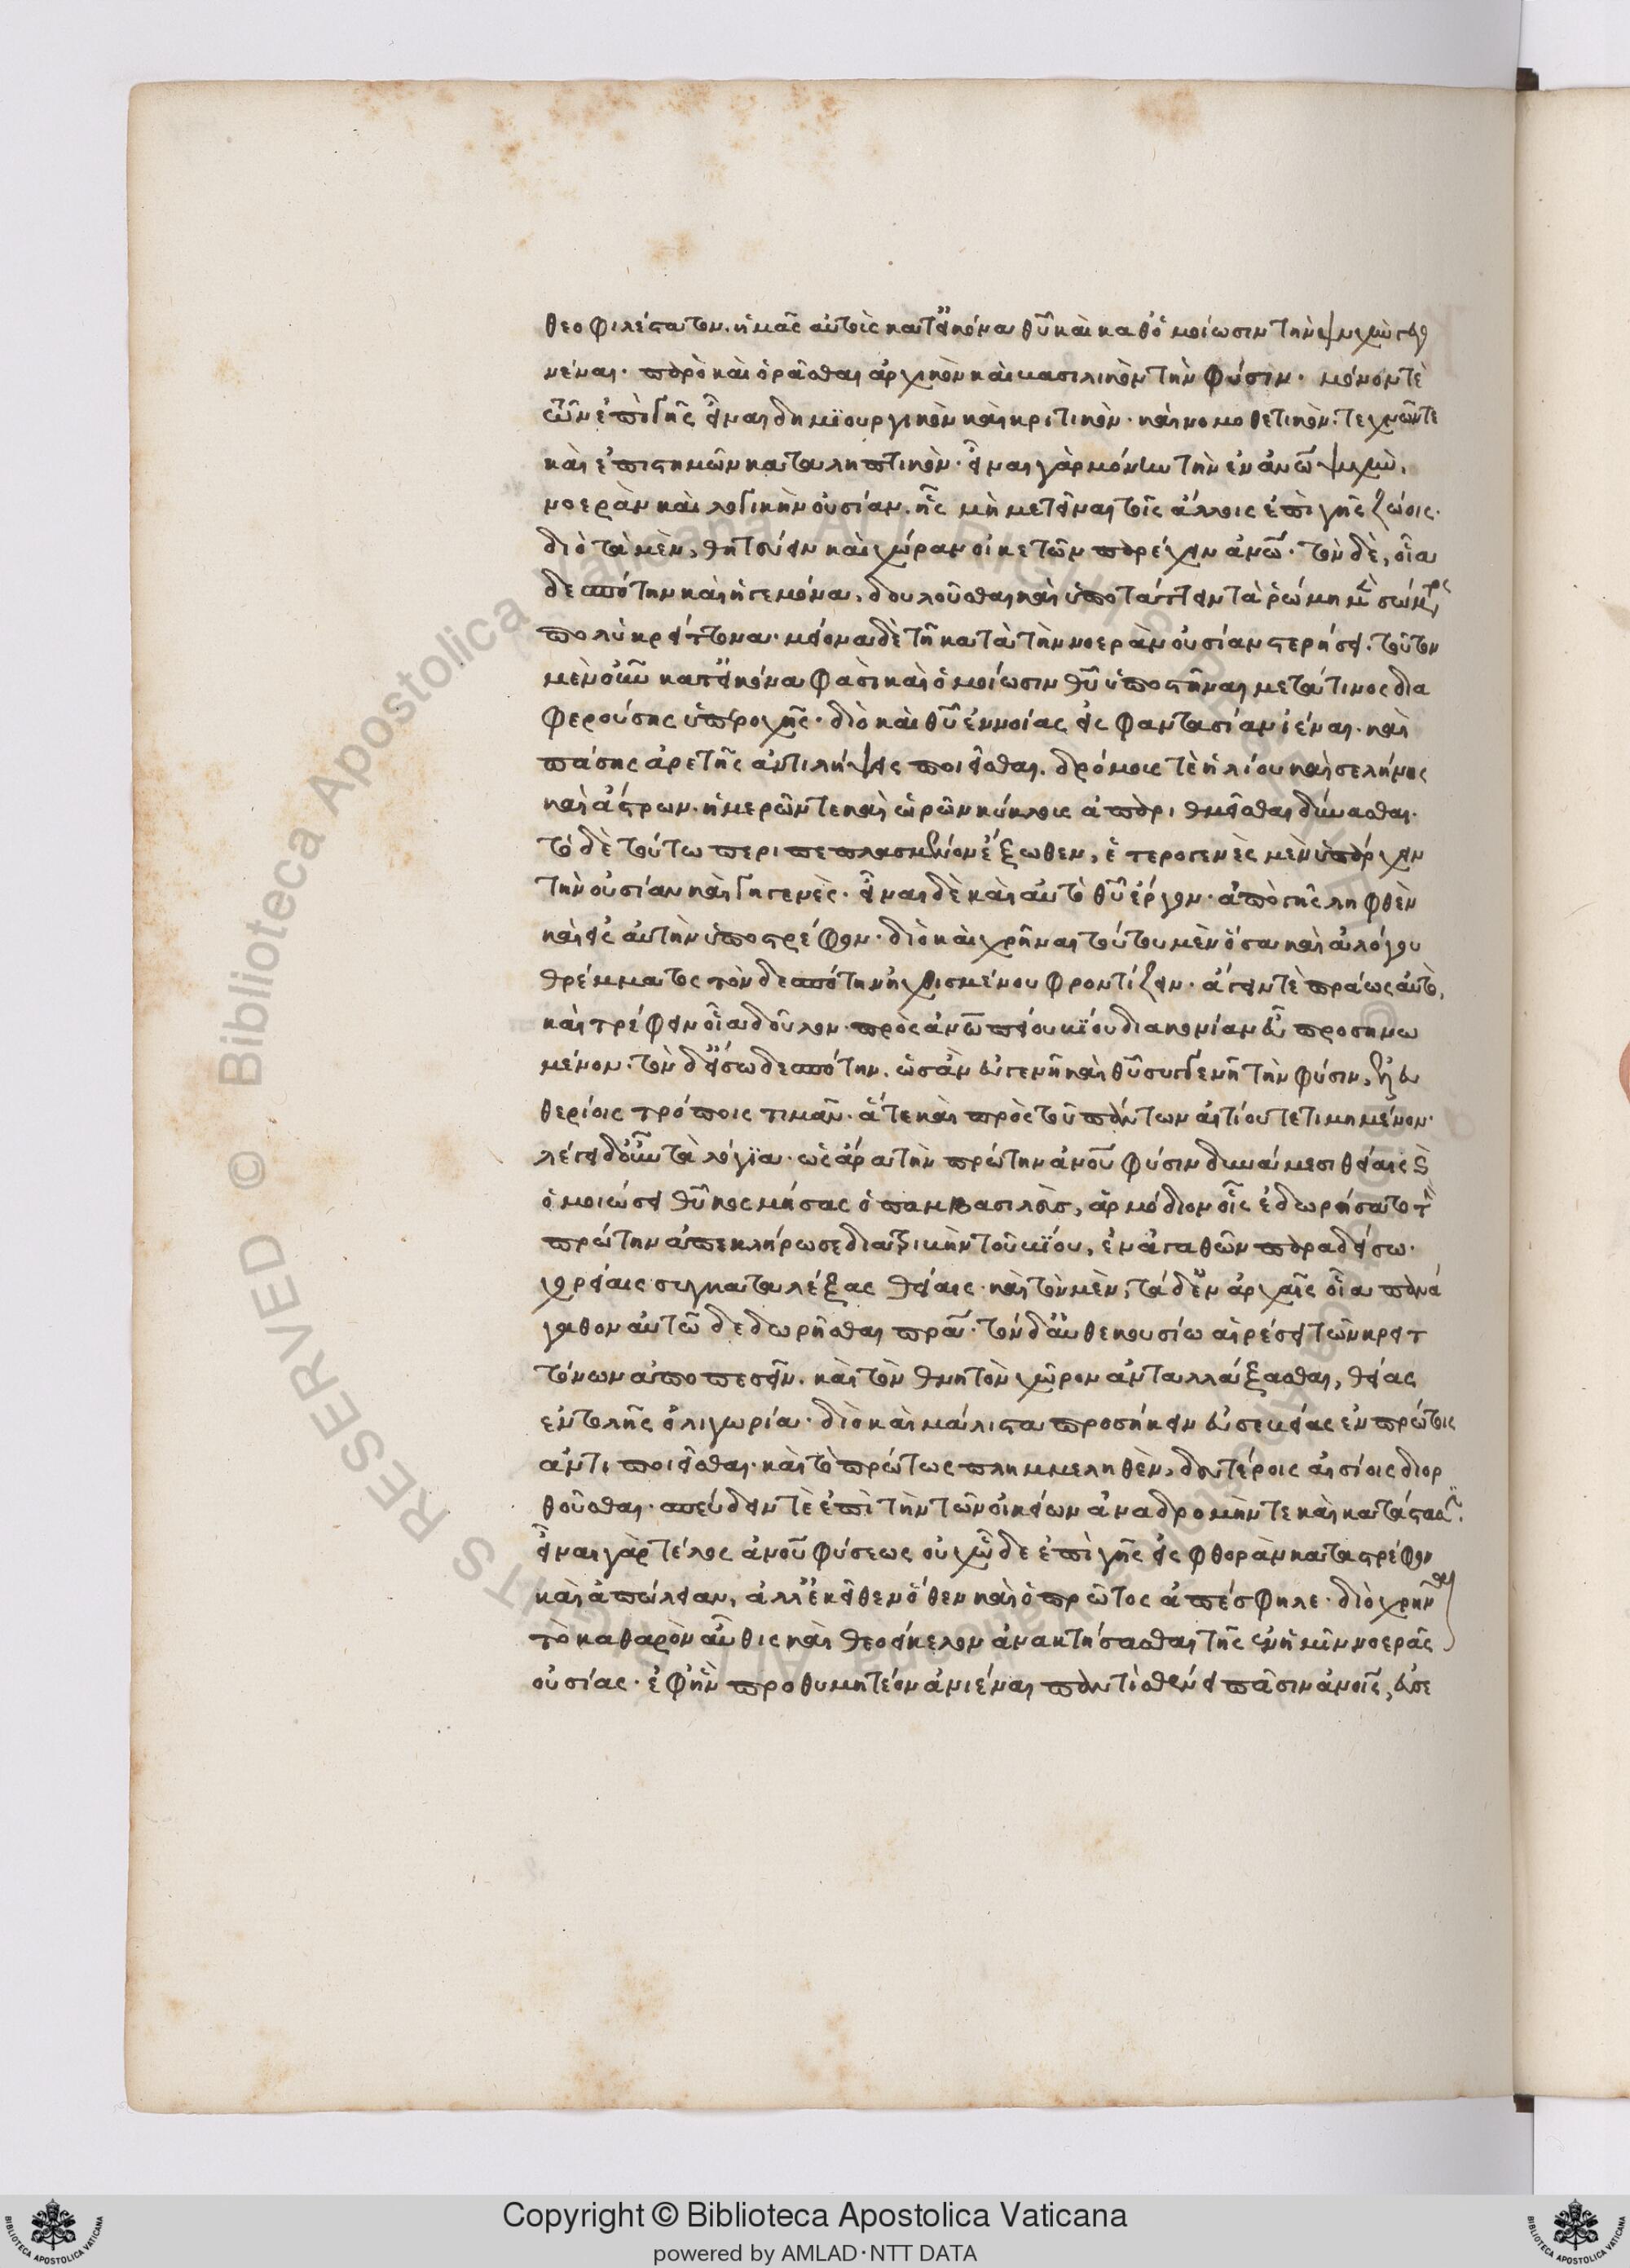 θεοφιλέστατον. ἡμᾶς αὐτοὺς κατ' εἰκόνα θυ̃ καὶ καθ' ὁμοίωσιν τὴν ψυχὴν γεγο
νέναι. παρὸ καὶ ὁρᾶσθαι ἀρχικὸν καὶ βασιλικὸν τὴν φύσιν. μόνον τὲ
τῶν ἐπὶ γῆς εἶναι δημϊουργικὸν καὶ κριτικὸν. καὶ νομοθετικὸν. τεχνῶν τε
καὶ ἐπιστημῶν καταληπτικὸν. εἶναι γὰρ μόνην τὴν ἐν ἀνω̃ ψυχὴν,
νοερὰν καὶ λογικὴν οὐσίαν. ἧς μὴ μετεῖναι τοῖς ἄλλοις ἐπὶ γῆς ζώοις.
διὸ τὰ μὲν, θητεύειν καὶ χώραν οἰκετῶν παρέχειν ἀνω̃. τὸν δὲ, οἷα
δεσπότην καὶ ἡγεμόνα, δουλοῦσθαι καὶ ὑποτάττειν τὰ ῥώμη μὲν σώματος
πολὺ κρείττονα. μείονα δὲ τῆ κατὰ τὴν νοερὰν οὐσίαν στερήσει. τοῦτον
μὲν οὖν κατ' εἰκόνα φασὶ καὶ ὁμοίωσιν θυ̃ ὑποστῆναι μετά τινος δια
φερούσης ὑπεροχῆς. διὸ καὶ θυ̃ ἐννοίας εἰς φαντασίαν ἰέναι. καὶ
πάσης ἀρετῆς ἀντιλήψεις ποιεῖσθαι. δρόμους τὲ ἡλίου καὶ σελήνης
καὶ ἄστρων. ἡμερῶν τε καὶ ὡρῶν κύκλους ἀπαριθμεῖσθαι δύνασθαι.
τὸ δὲ τούτω περιπεπλασμένον ἔξωθεν, ἑτερογενὲς μὲν ὑπάρχειν
τὴν οὐσίαν καὶ γηγενὲς. εἶναι δὲ καὶ αὐτὸ θυ̃ ἔργον. ἀπὸ γῆς ληφθὲν
καὶ εἰς αὐτὴν ὑποστρέφον. διὸ καὶ χρῆναι τούτου μὲν ὅσα καὶ ἀλόγου
θρέμματος τὸν δεσπότην ἠχθισμένου φροντίζειν. ἄγειν τὲ πράως αὐτὸ,
καὶ τρέφειν οἷα δοῦλον. πρὸς ἀνω̃ πείου βίου διακονίαν εὖ προσηνω
μένον. τὸν δ' εἴσω δεσπότην. ὡσὰν εὐγενῆ καὶ θυ̃ συγγενῆ τὴν φύσιν, ἐλευ
θερίοις τρόποις τιμᾶν. ἅτε καὶ πρὸς τοῦ πάντων αἰτίου τετιμημένον.
λέγει δ' οὖν τὰ λόγϊα. ὡς ἄρα τὴν πρώτην ἀνου̃ φύσιν δυνάμεσι θείαις καὶ
ὁμοιώσει θυ̃ κοσμήσας ὁ παμβασιλεὺς, ἁρμόδιον οἷς ἐδωρήσατο τὴν
πρώτην ἀπεκλήρωσε διατριβικὴν τοῦ βίου, ἐν ἀγαθῶν παραδείσω.
χορείαις συγκαταλέξας θείαις. καὶ τὸν μὲν, τάδ' ἐν ἀρχαῖς οἷα πανά
γαθον αὐτῶ δεδωρῆσθαι πρα̃. τὸν δ' αὐθεκουσίω αἱρέσει τῶν κρειτ
τόνων ἀποπεσεῖν. καὶ τὸν θνητὸν χῶρον ἀνταλλάξασθαι, θείας
ἐντολῆς ὀλιγωρία. διὸ καὶ μάλιστα προσήκειν εὐσεβείας ἐν πρώτοις
ἀντιποιεῖσθαι. καὶ τὸ πρώτως πλημμεληθὲν, δευτέροις αἰσίοις διορ
θοῦσθαι. σπεύδειν τὲ ἐπὶ τὴν τῶν οἰκείων ἀναδρομήν τε καὶ κατάστασιν.
εἶναι γὰρ τέλος ἀνου̃ φύσεως οὐχ ὧδε ἐπὶ γῆς εἰς φθορὰν καταστρέφον
καὶ ἀπώλειαν, ἀλλ' ἐκεῖθεν ὅθεν καὶ ὁ πρῶτος ἀπέσφηλε. διὸ χρῆναι
τὸ καθαρὸν αὖθις καὶ θεοείκελον ἀνακτήσασθαι τῆς ἐν ἡμῖν νοερᾶς
οὐσίας. ἐφ' ἣν προθυμητέον ἀνιέναι παντὶ σθένει πᾶσιν ἀνοις̃, εὐσε